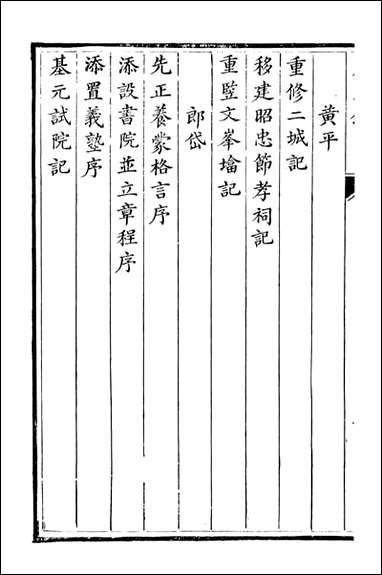 黃平
重修二城記
移建昭忠節孝祠記
重豎文峯墖記
郎岱
先正養蒙格言序
添設書院並立章程序
添置義塾序
基元試院記